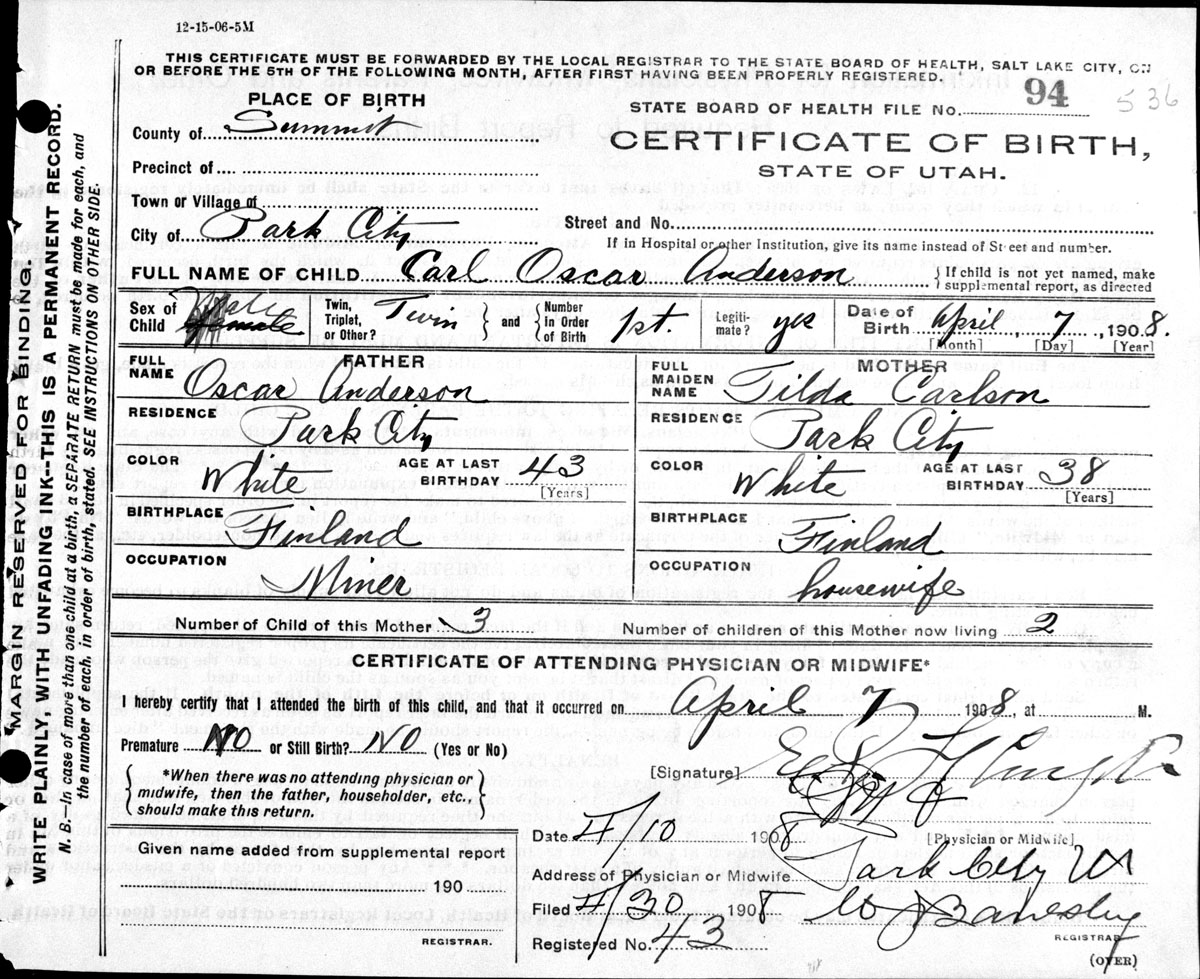 12-15-06-5M
THIS CERTIFICATE MUST BE FORWARDED BY THE LOCAL REGISTRAR TO THE STATE BOARD OF HEALTH, SALT LAKE CITY, ON
OR BEFORE THE 5TH OF THE FOLLOWING MONTH, AFTER FIRST HAVING BEEN PROPERLY REGISTERED.
PLACE OF BIRTH
STATE BOARD OF HEALTH FILE No. 94 536
County of Summit
CERTIFICATE OF BIRTH,
STATE OF UTAH.
Precinct of
Town or Village of
City of Park City Street and No.
If in Hospital or other Institution, give its name instead of Street and number.
FULL NAME OF CHILD Carl Oscar Anderson } If child is not yet named, make supplemental report, as directed
Sex of Child Male Female Twin, Triplet, or Other? Twin } and { Number in Order of Birth 1st. Legitimate? yes Date of Birth April 7, 1908.
[Month] [Day] [Year]
FATHER
FULL NAME Oscar Anderson
RESIDENCE Park City
COLOR White AGE AT LAST BIRTHDAY 43
[Years]
BIRTHPLACE Finland
OCCUPATION Miner
MOTHER
FULL MAIDEN NAME Tilda Carlson
RESIDENCE Park City
COLOR White AGE AT LAST BIRTHDAY 38
[Years]
BIRTHPLACE Finland
OCCUPATION housewife
Number of Child of this Mother 3 Number of children of this Mother now living 2
CERTIFICATE OF ATTENDING PHYSICIAN OR MIDWIFE*
I hereby certify that I attended the birth of this child, and that it occurred on April 7 1908, at M.
Premature No or Still Birth? No (Yes or No)
{ *When there was no attending physician or midwife, then the father, householder, etc., should make this return. }
[Signature]
[Physician or Midwife]
Date 4/10 1908
Address of Physician or Midwife Park City Ut
Filed 4/30 1908
REGISTRAR
Registered No. 43
Given name added from supplemental report
190
REGISTRAR.
(OVER)
MARGIN RESERVED FOR BINDING.
WRITE PLAINLY, WITH UNFADING INK--THIS IS A PERMANENT RECORD.
N. B.—In case of more than one child at a birth, a SEPARATE RETURN must be made for each, and
the number of each, in order of birth, stated. SEE INSTRUCTIONS ON OTHER SIDE.